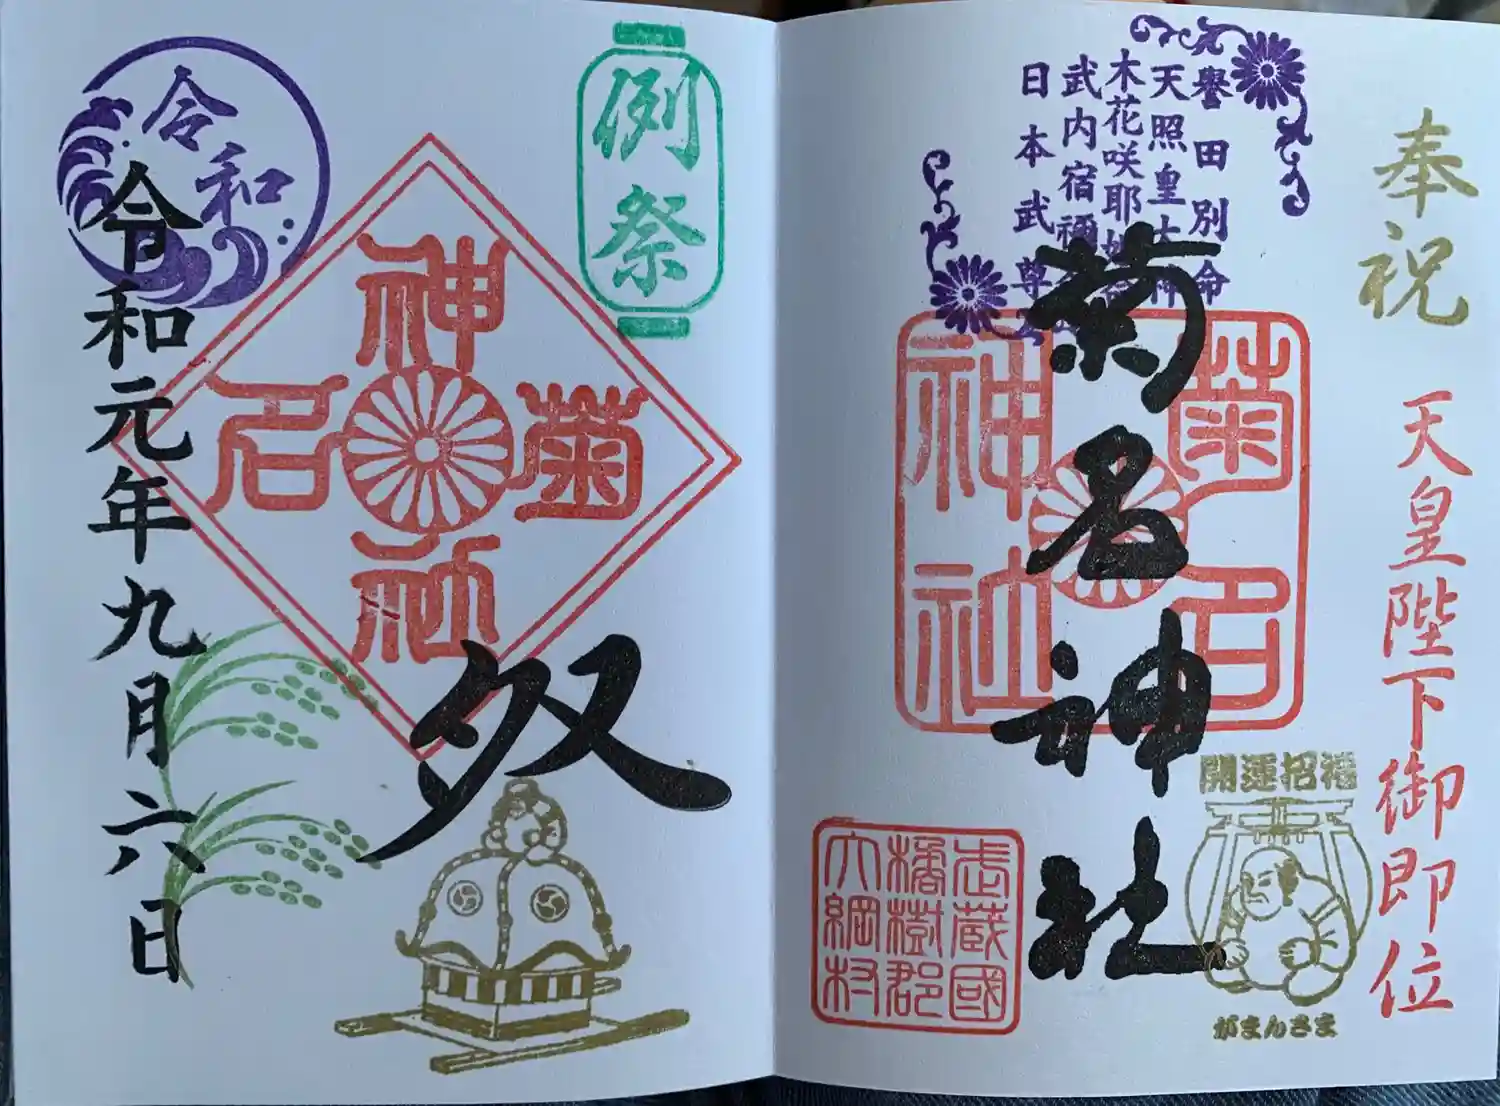 奉祝
天皇陛下御即位
譽田別命
天照皇大神
木花咲耶姫命
武内宿禰
日本武尊
菊名神社
菊名
神社
開運招福
がまんさま
武蔵國
橘樹郡
大綱村
例祭
菊名神社
令和
令和元年九月六日